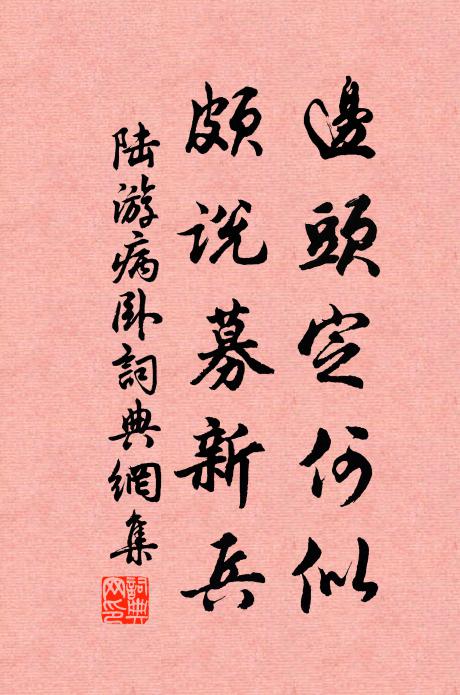 邊頭定何似
頗說募新兵
陸游病卧詞典網集
詞典
网印